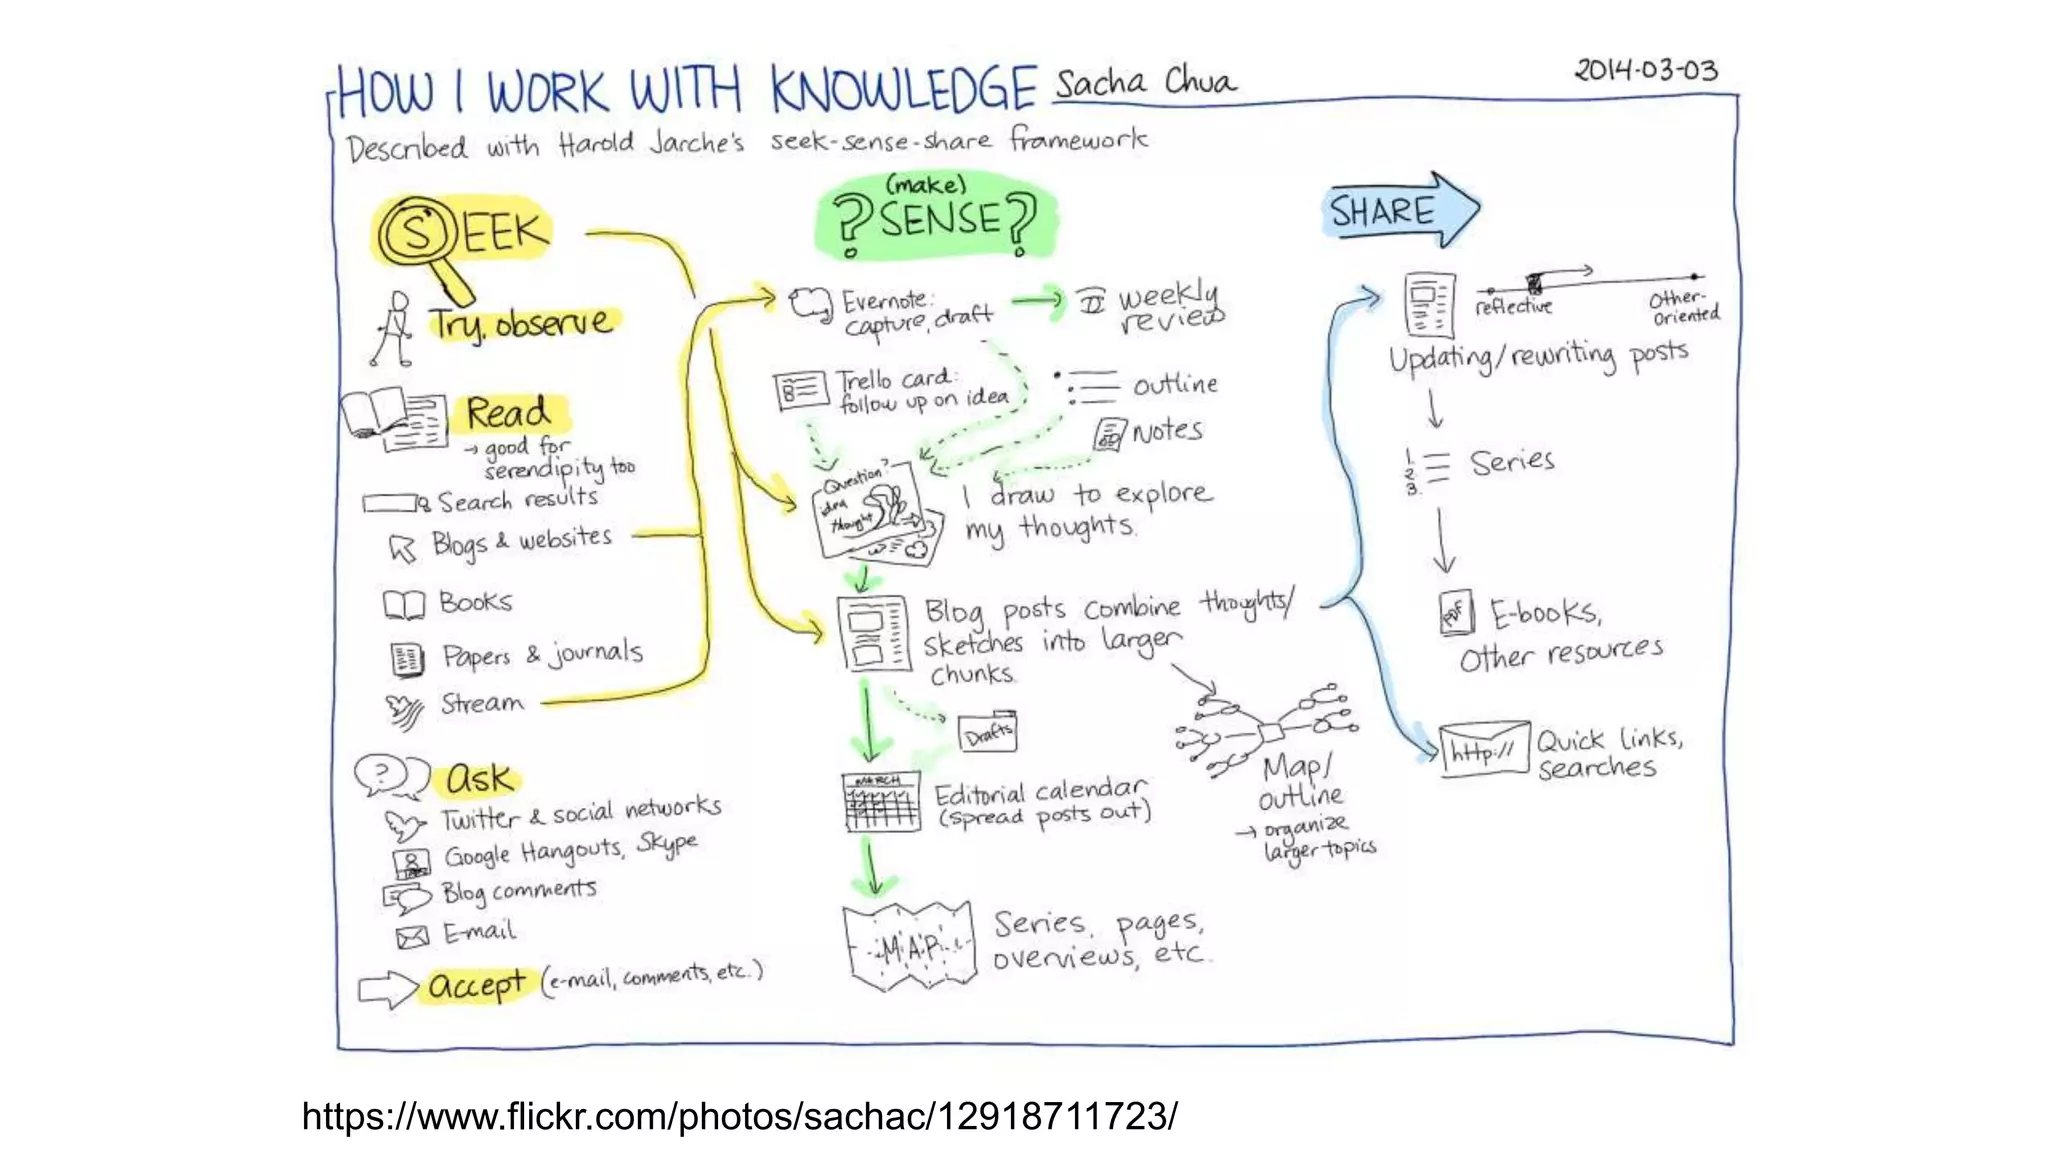 HOW I WORK WITH KNOWLEDGE Sacha Chua
2014-03-03
Described with Harold Jarche's seek-sense-share framework
SEEK
Try, observe
Read
→ good for
serendipity too
Search results
Blogs & websites
Books
Papers & journals
Stream
?
Ask
Twitter & social networks
Google Hangouts, Skype
Blog comments
E-mail
Accept (e-mail, comments, etc.)
(make)
?SENSE?
Evernote:
capture, draft
weekly
review
Trello card:
follow up on idea
outline
Notes
Question?
idea
thought
I draw to explore
my thoughts.
Blog posts combine thoughts/
sketches into larger
chunks.
Drafts
MARCH
Editorial calendar
(spread posts out)
Map/
outline
→ organize
larger topics
MAP
Series, pages,
overviews, etc.
SHARE
reflective
Other-
oriented
Updating/rewriting posts
1.
2.
3.
Series
PDF
E-books,
Other resources
http://
Quick links,
searches
https://www.flickr.com/photos/sachac/12918711723/